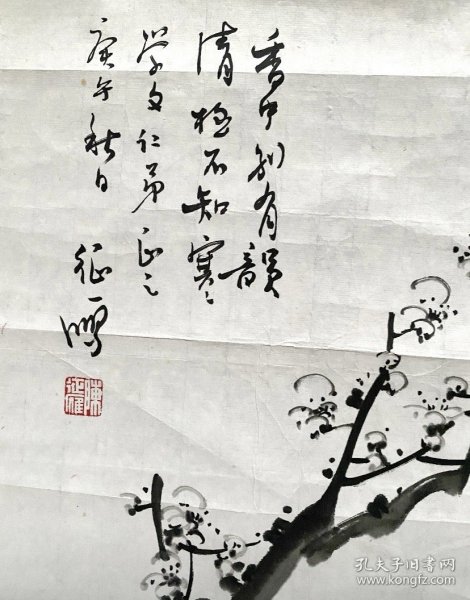 香中别有韻
清极不知寒
学文仁弟正之
庚午秋日 征雁
陳征雁
孔夫子旧书网
www.kongfz.com